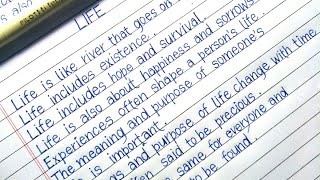 LIFE
Life is like river that goes on
Life includes existence.
Life includes hope and survival.
Life is also about happiness and sorrows
Experiences often shape a person's life.
The meaning and purpose of someone's
is important.
and purpose of life change with time
said to be precious.
same for everyone and
to be found.